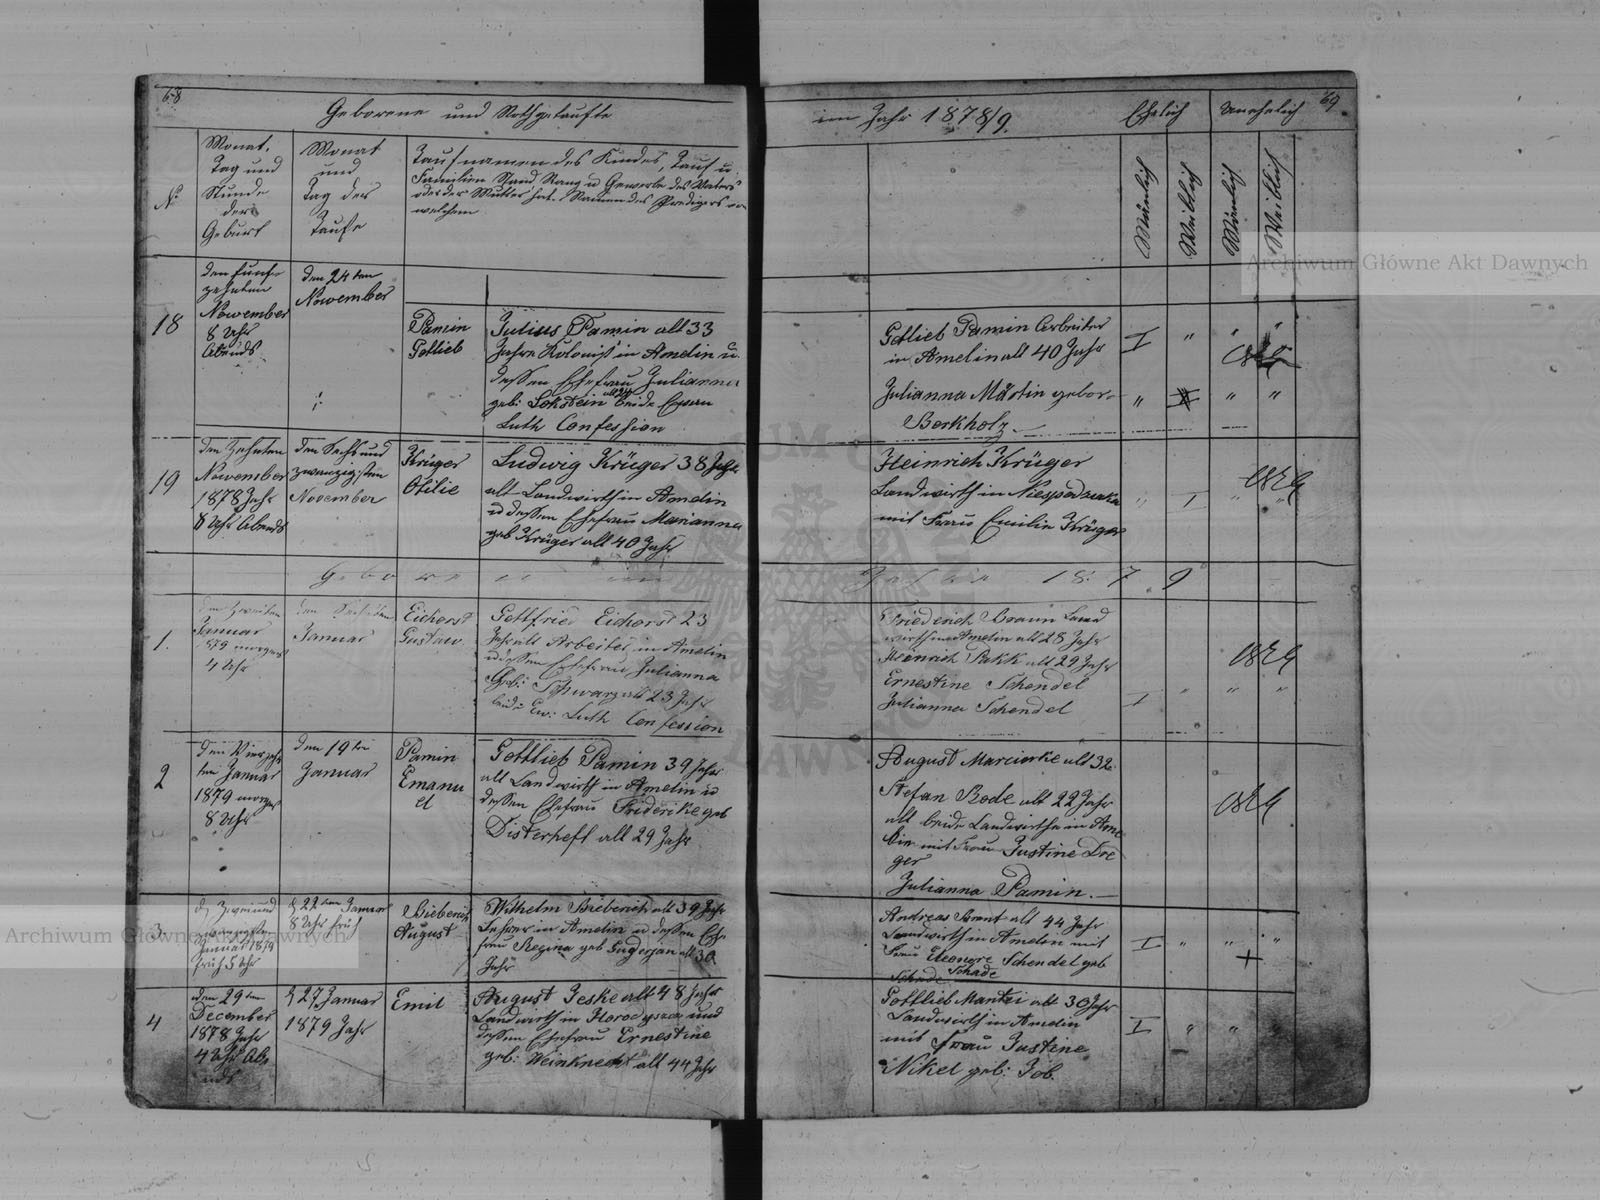 68
Geborene und Nothgetaufte
im Jahr 1878/9.
Ehelich
Unehelich
69
No
Monat,
Tag und
Stunde
der
Geburt
Monat
und
Tag der
Taufe
Taufnamen des Kindes, Tauf u:
Familien Stand Rang u Gewerbe des Vaters
oder der Mutter hat. Namen des Predigers von
welchem
Mänlich
Weiblich
Mänlich
Weiblich
18
den funf-
zehnten
November
8 Uhr
Abends
den 24ten
November
Pamin
Gotlieb
Julius Pamin alt 33
Jahre Kolonist in Amelin u.
dessen Ehefrau Julianna
geb: Lokstein beide Evan
Luth Confession
Gotlieb Pamin Arbeiter
in Amelin alt 40 Jahr
Julianna Mårtin gebor-
Berkholz
I " " "
19
den Zehnten
November
1878 Jahr
8 Uhr Abends
den Sechs und
zwanzigsten
November
Krüger
Otilie
Ludwig Krüger 38 Jahr
alt Landwirth in Amelin
u dessen Ehefrau Marianna
geb Krüger alt 40 Jahr
Heinrich Krüger
Landwirth in
mit Frau Emilie Krüger
" I " "
Geborene im Jahre 1879
1.
den zweiten
Januar
1879 morgens
4 Uhr
den
Januar
Eichorst
Gustaw.
Gottfried Eichorst 23
Jahr alt Arbeiter in Amelin
u dessen Ehefrau Julianna
Geb: Schwarz alt 23 Jahr
beide Ew: Luth Confession
Friederich Braun Land
wirth in Amelin alt 28 Jahr
Heinrich Pakk alt 29 Jahr
Ernestine Schendel
Julianna Schendel
I " " "
2
den Vierzehn
ten Januar
1879 morgens
8 Uhr
den 19ten
Januar
Pamin
Emanu
el
Gottlieb Pamin 39 Jahr
alt Landwirth in Amelin u
dessen Ehefrau Friderike geb
Disterheft alt 29 Jahr
August Marcinke alt 32
Stefan Rode alt 22 Jahr
alt beide Landwirthe in Ame
lin mit Frau Justine Dre
ger
Julianna Pamin.
3
d. Zwei und
zwanzigsten
Januar 1879
früh 5 Uhr
d 22ten Januar
8 Uhr früh
Bieberich
August
Wilhelm Bieberich alt 39 Jahr
Lehrer in Amelin u dessen Ehe
frau Regina geb Gugerjan alt 30
Jahr
Andreas Brent alt 44 Jahr
Landwirth in Amelin mit
Frau Eleonore Schendel geb
Schade
Schade
I " " "
4
den 29ten
December
1878 Jahr
4 Uhr Abe
nds
d 27 Januar
1879 Jahr
Emil
August Jeske alt 48 Jahr
Landwirth in Horodyszcze und
dessen Ehefrau Ernestine
geb: Weinknecht alt 44 Jahr
Gottlieb Mantei alt 30 Jahr
Landwirth in Amelin
mit Frau Justine
Nikel geb: Job.
I " "
Archiwum Główne Akt Dawnych
Archiwum Główne Akt Dawnych